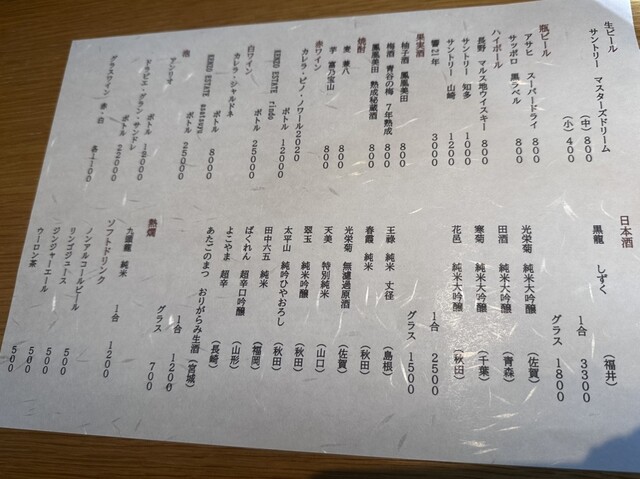 生ビール
サントリー マスターズドリーム
(中) 800
(小) 400
瓶ビール
アサヒ スーパードライ 800
サッポロ 黒ラベル 800
ハイボール
長野 マルス地ウイスキー 800
サントリー 知多 1000
サントリー 山崎 1200
響21年 3000
果実酒
柚子酒 鳳凰美田 800
梅酒 青谷の梅 7年熟成 800
鳳凰美田 熟成秘蔵酒 800
焼酎
麦 兼八 800
芋 富乃宝山 800
赤ワイン
カレラ・ピノ・ノワール2020
ボトル 12000
KENZO ESTATE rindo
ボトル 25000
白ワイン
カレラ・シャルドネ
ボトル 8000
KENZO ESTATE asatsuyu
ボトル 25000
泡
アンリオ
ボトル 22000
ドラピエ・グラン・サンドレ
ボトル 12000
グラスワイン 赤・白 各1100
日本酒
黒龍 しずく (福井)
1合 3300
グラス 1800
光栄菊 純米大吟醸 (佐賀)
田酒 純米大吟醸 (青森)
寒菊 純米大吟醸 (千葉)
花邑 純米大吟醸 (秋田)
1合 2500
グラス 1500
王祿 純米 丈径 (島根)
春霞 純米 (秋田)
光栄菊 無濾過原酒 (佐賀)
天美 特別純米 (山口)
翠玉 純米吟醸 (秋田)
太平山 純吟ひやおろし (秋田)
田中六五 純米 (福岡)
ばくれん 超辛口吟醸 (山形)
よこやま 超辛 (長崎)
あたごのまつ おりがらみ生酒 (宮城)
1合 1200
グラス 700
熱燗
九頭龍 純米 1合 1200
ソフトドリンク
ノンアルコールビール 500
リンゴジュース 500
ジンジャーエール 500
ウーロン茶 500